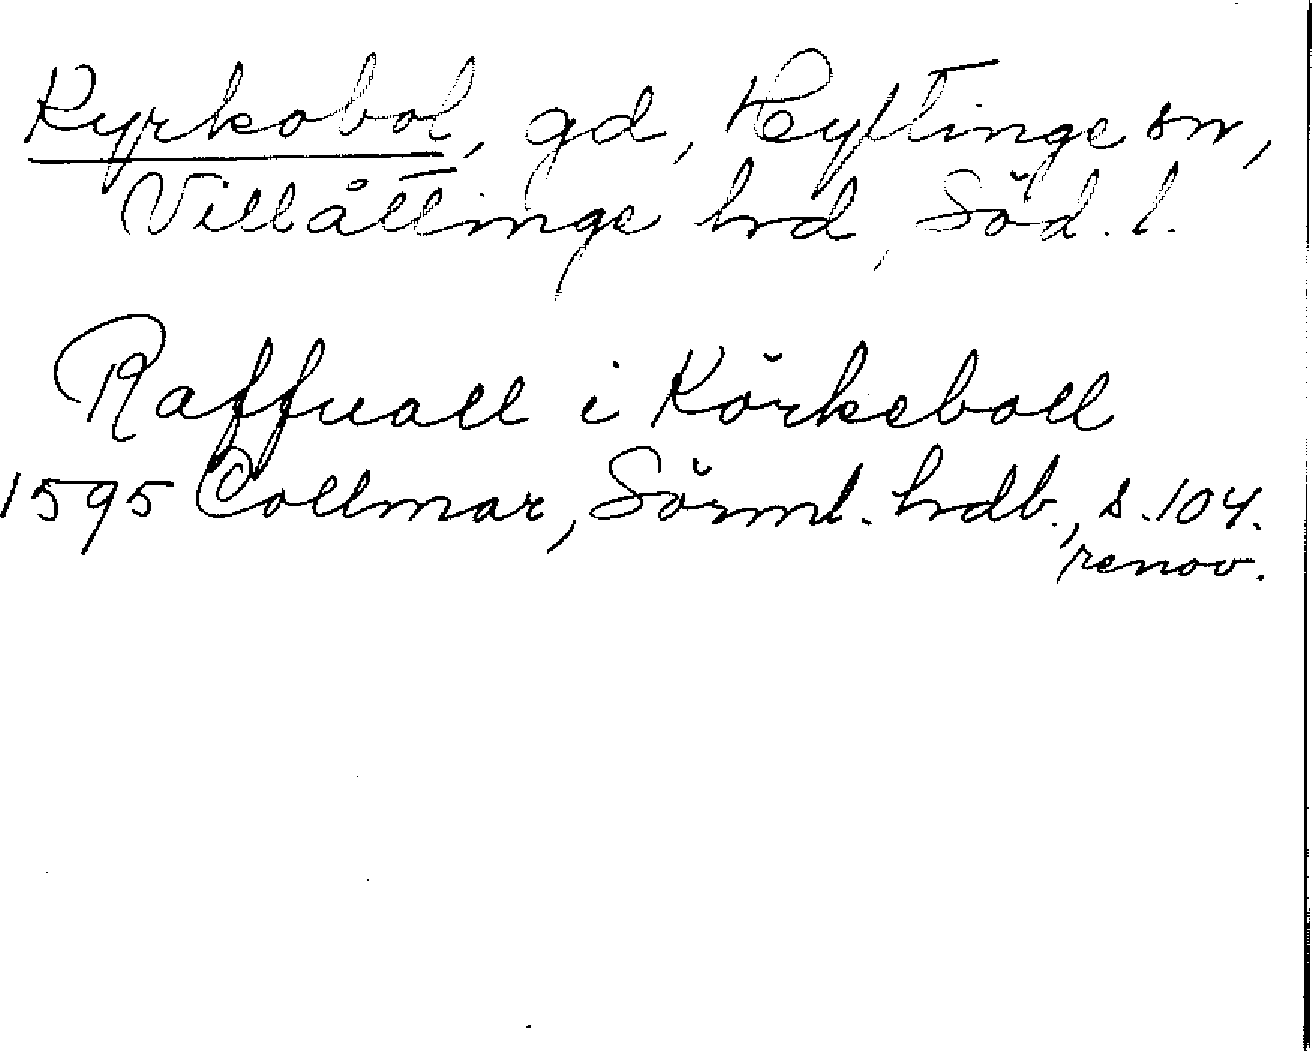 Kyrkobol, gd, Hyltinge sn,
Villåttinge hrd, Söd. l.
Raffuall i Körkeboll
1595 Collmar, Sörml. hrdb., s. 104.
renov.